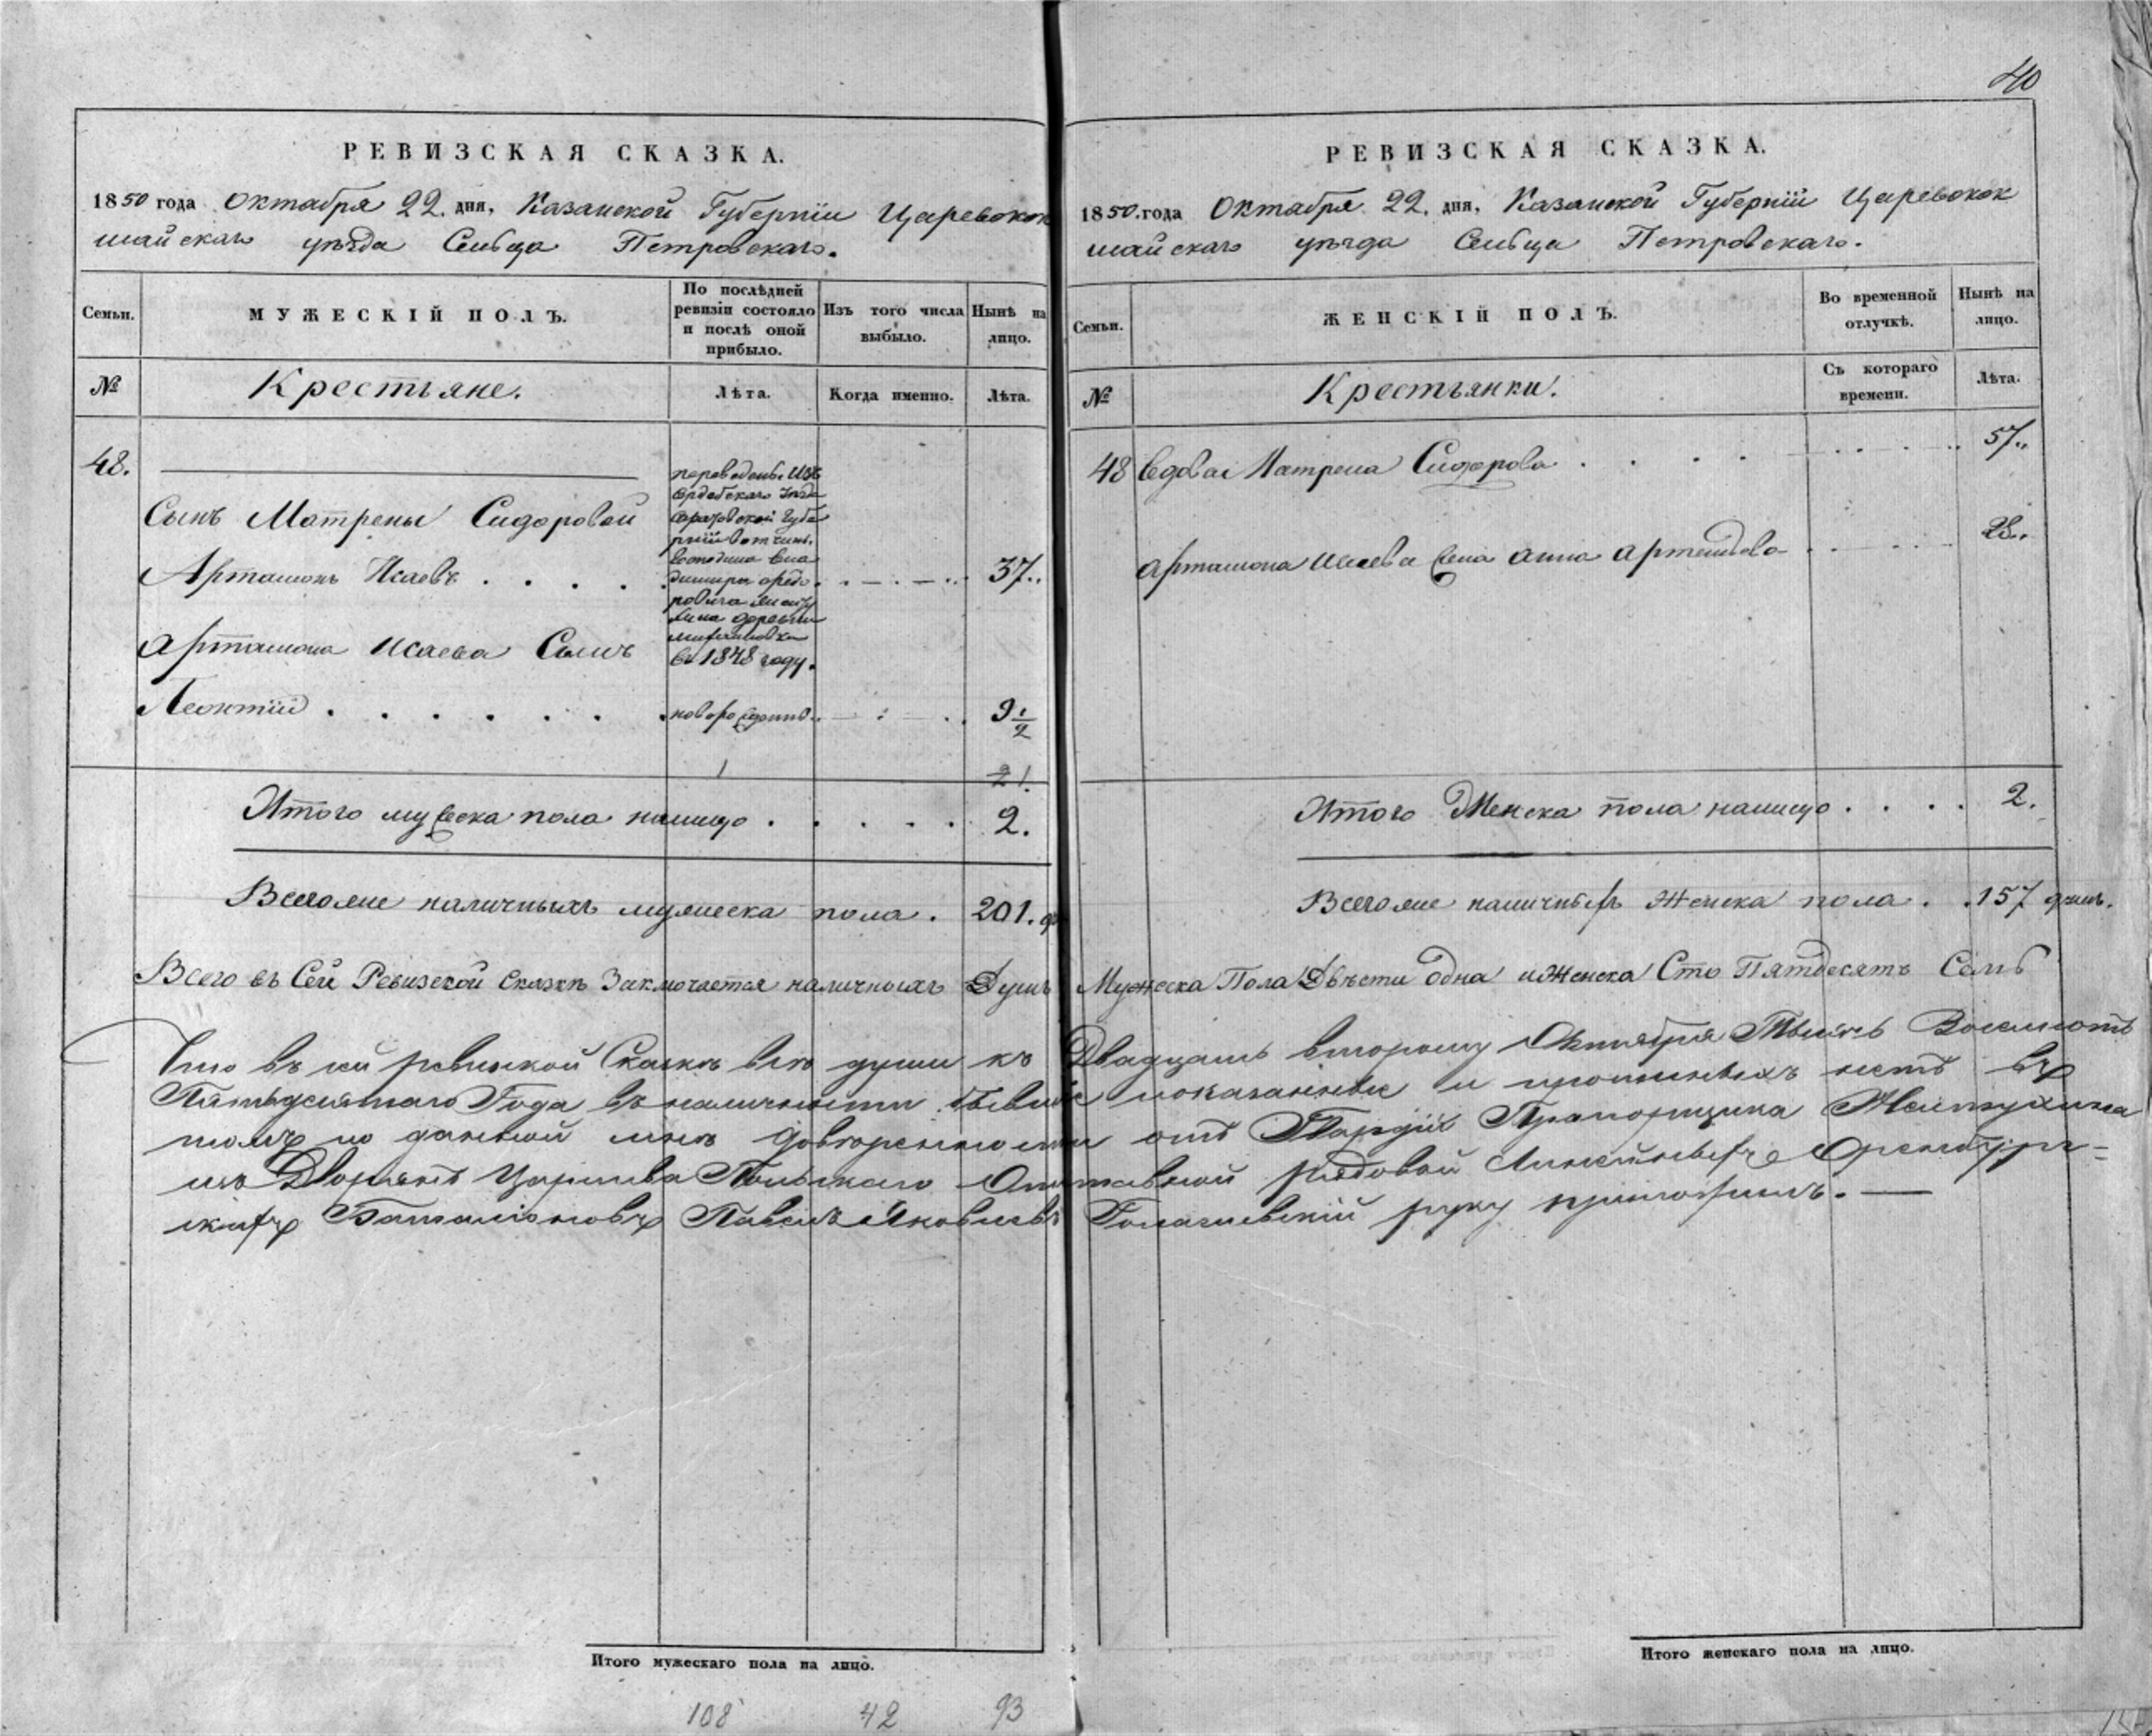 40
РЕВИЗСКАЯ СКАЗКА.
1850 года Октября 22. дня, Казанской Губернiи Царевокок
шайскаго уѣзда Сельца Петровскаго.
Семьи.
МУЖЕСКIЙ ПОЛЪ.
По послѣдней
ревизiи состояло
и послѣ оной
прибыло.
Изъ того числа
выбыло.
Нынѣ на
лицо.
№
Крестьяне.
Лѣта.
Когда именно.
Лѣта.
48.
Сынъ Матрены Сидоровой
Артамонъ Исаевъ . . . . 37..
переведенъ изъ
Сердобскаго уѣзда
Саратовской Губе
рнiи вотчины
Господина Вла
димира
деревни
въ 1848 году.
Артамона Исаева Сынъ
Леонтiй . . . . . . . новорожденъ. 9 1/2
1
21.
Итого мужеска пола налицо . . . . . 2.
Всего же наличныхъ мужеска пола . 201.
РЕВИЗСКАЯ СКАЗКА.
1850. года Октября 22. дня, Казанской Губернiи Царевокок
шайскаго уѣзда Сельца Петровскаго.
Семьи.
ЖЕНСКIЙ ПОЛЪ.
Во временной
отлучкѣ.
Нынѣ на
лицо.
№
Крестьянки.
Съ котораго
времени.
Лѣта.
48 Вдова Матрена Сидорова . . . . 57..
Артамона Исаева жена Анна 28..
Итого Женска пола налицо . . . . 2.
Всего же наличныхъ Женска пола . . 157 душъ.
Всего въ Сей Ревизской Сказкѣ Заключается наличныхъ Душъ Мужеска Пола Двѣсти Одна и Женска Сто Пятдесятъ Семь
Что въ сей ревизской Сказкѣ всѣ души къ Двадцать второму Октября Тысяча Восемьсотъ
Пятьдесятаго Года въ наличности бывшiе показанные и прописныхъ нетъ въ
томъ по данной мнѣ доверенности отъ Гвардiи Прапорщика Желтухина
изъ Дворянъ Царства Польскаго Отставной рядовой Линейныхъ Оренбург=
скихъ Баталiоновъ Павелъ Яковлевъ руку приложилъ.
Итого мужескаго пола на лицо.
Итого женскаго пола на лицо.
108 42 93